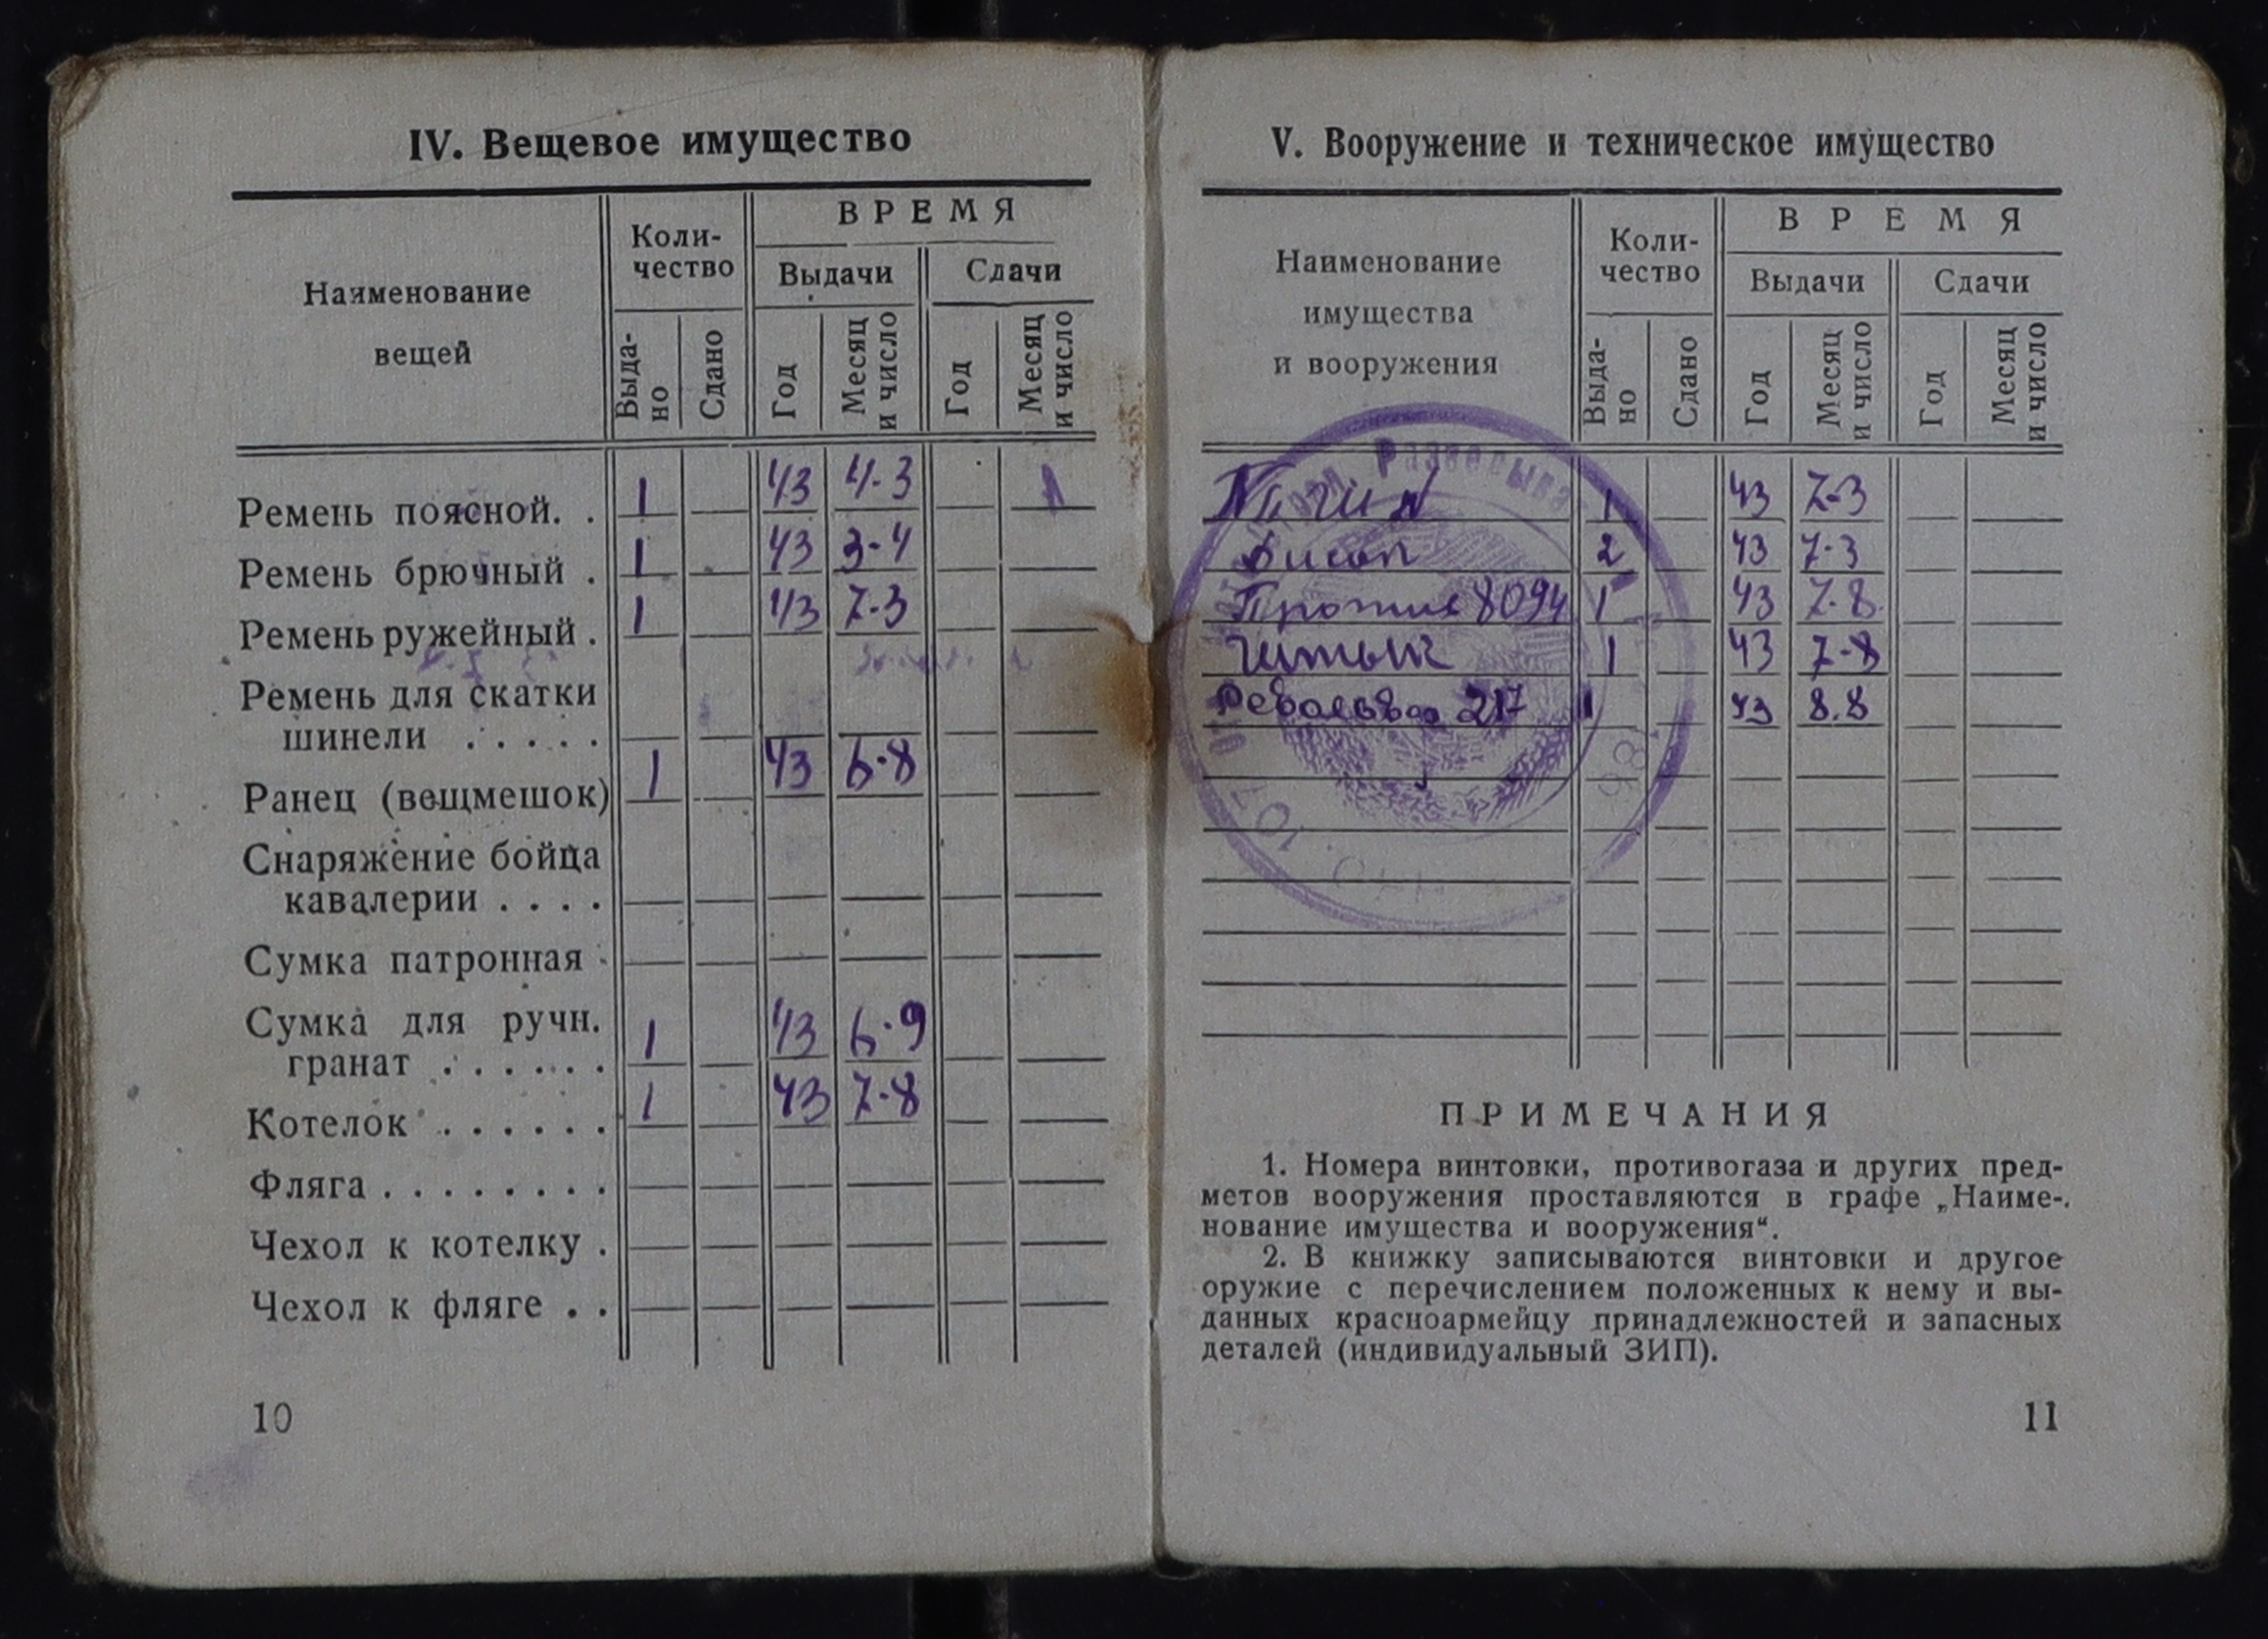 IV. Вещевое имущество
Наименование
вещей
Коли-
чество
ВРЕМЯ
Выдачи
Сдачи
Выда-
но
Сдано
Год
Месяц
и число
Год
Месяц
и число
Ремень поясной. . 1 43 4.3 1
Ремень брючный . 1 43 3-4
Ремень ружейный . 1 43 7.3
Ремень для скатки
шинели . . . . .
Ранец (вещмешок) 1 43 6.8
Снаряжение бойца
кавалерии . . . .
Сумка патронная .
Сумка для ручн.
гранат . . . . . . 1 43 6.9
Котелок . . . . . . 1 43 7.8
Фляга . . . . . . . .
Чехол к котелку .
Чехол к фляге . .
10
V. Вооружение и техническое имущество
Наименование
имущества
и вооружения
Коли-
чество
ВРЕМЯ
Выдачи
Сдачи
Выда-
но
Сдано
Год
Месяц
и число
Год
Месяц
и число
1 43 7-3
2 43 7.3
8094 1 43 7.8
1 43 7-8
217 1 43 8.8
ПРИМЕЧАНИЯ
1. Номера винтовки, противогаза и других пред-
метов вооружения проставляются в графе „Наиме-
нование имущества и вооружения“.
2. В книжку записываются винтовки и другое
оружие с перечислением положенных к нему и вы-
данных красноармейцу принадлежностей и запасных
деталей (индивидуальный ЗИП).
11